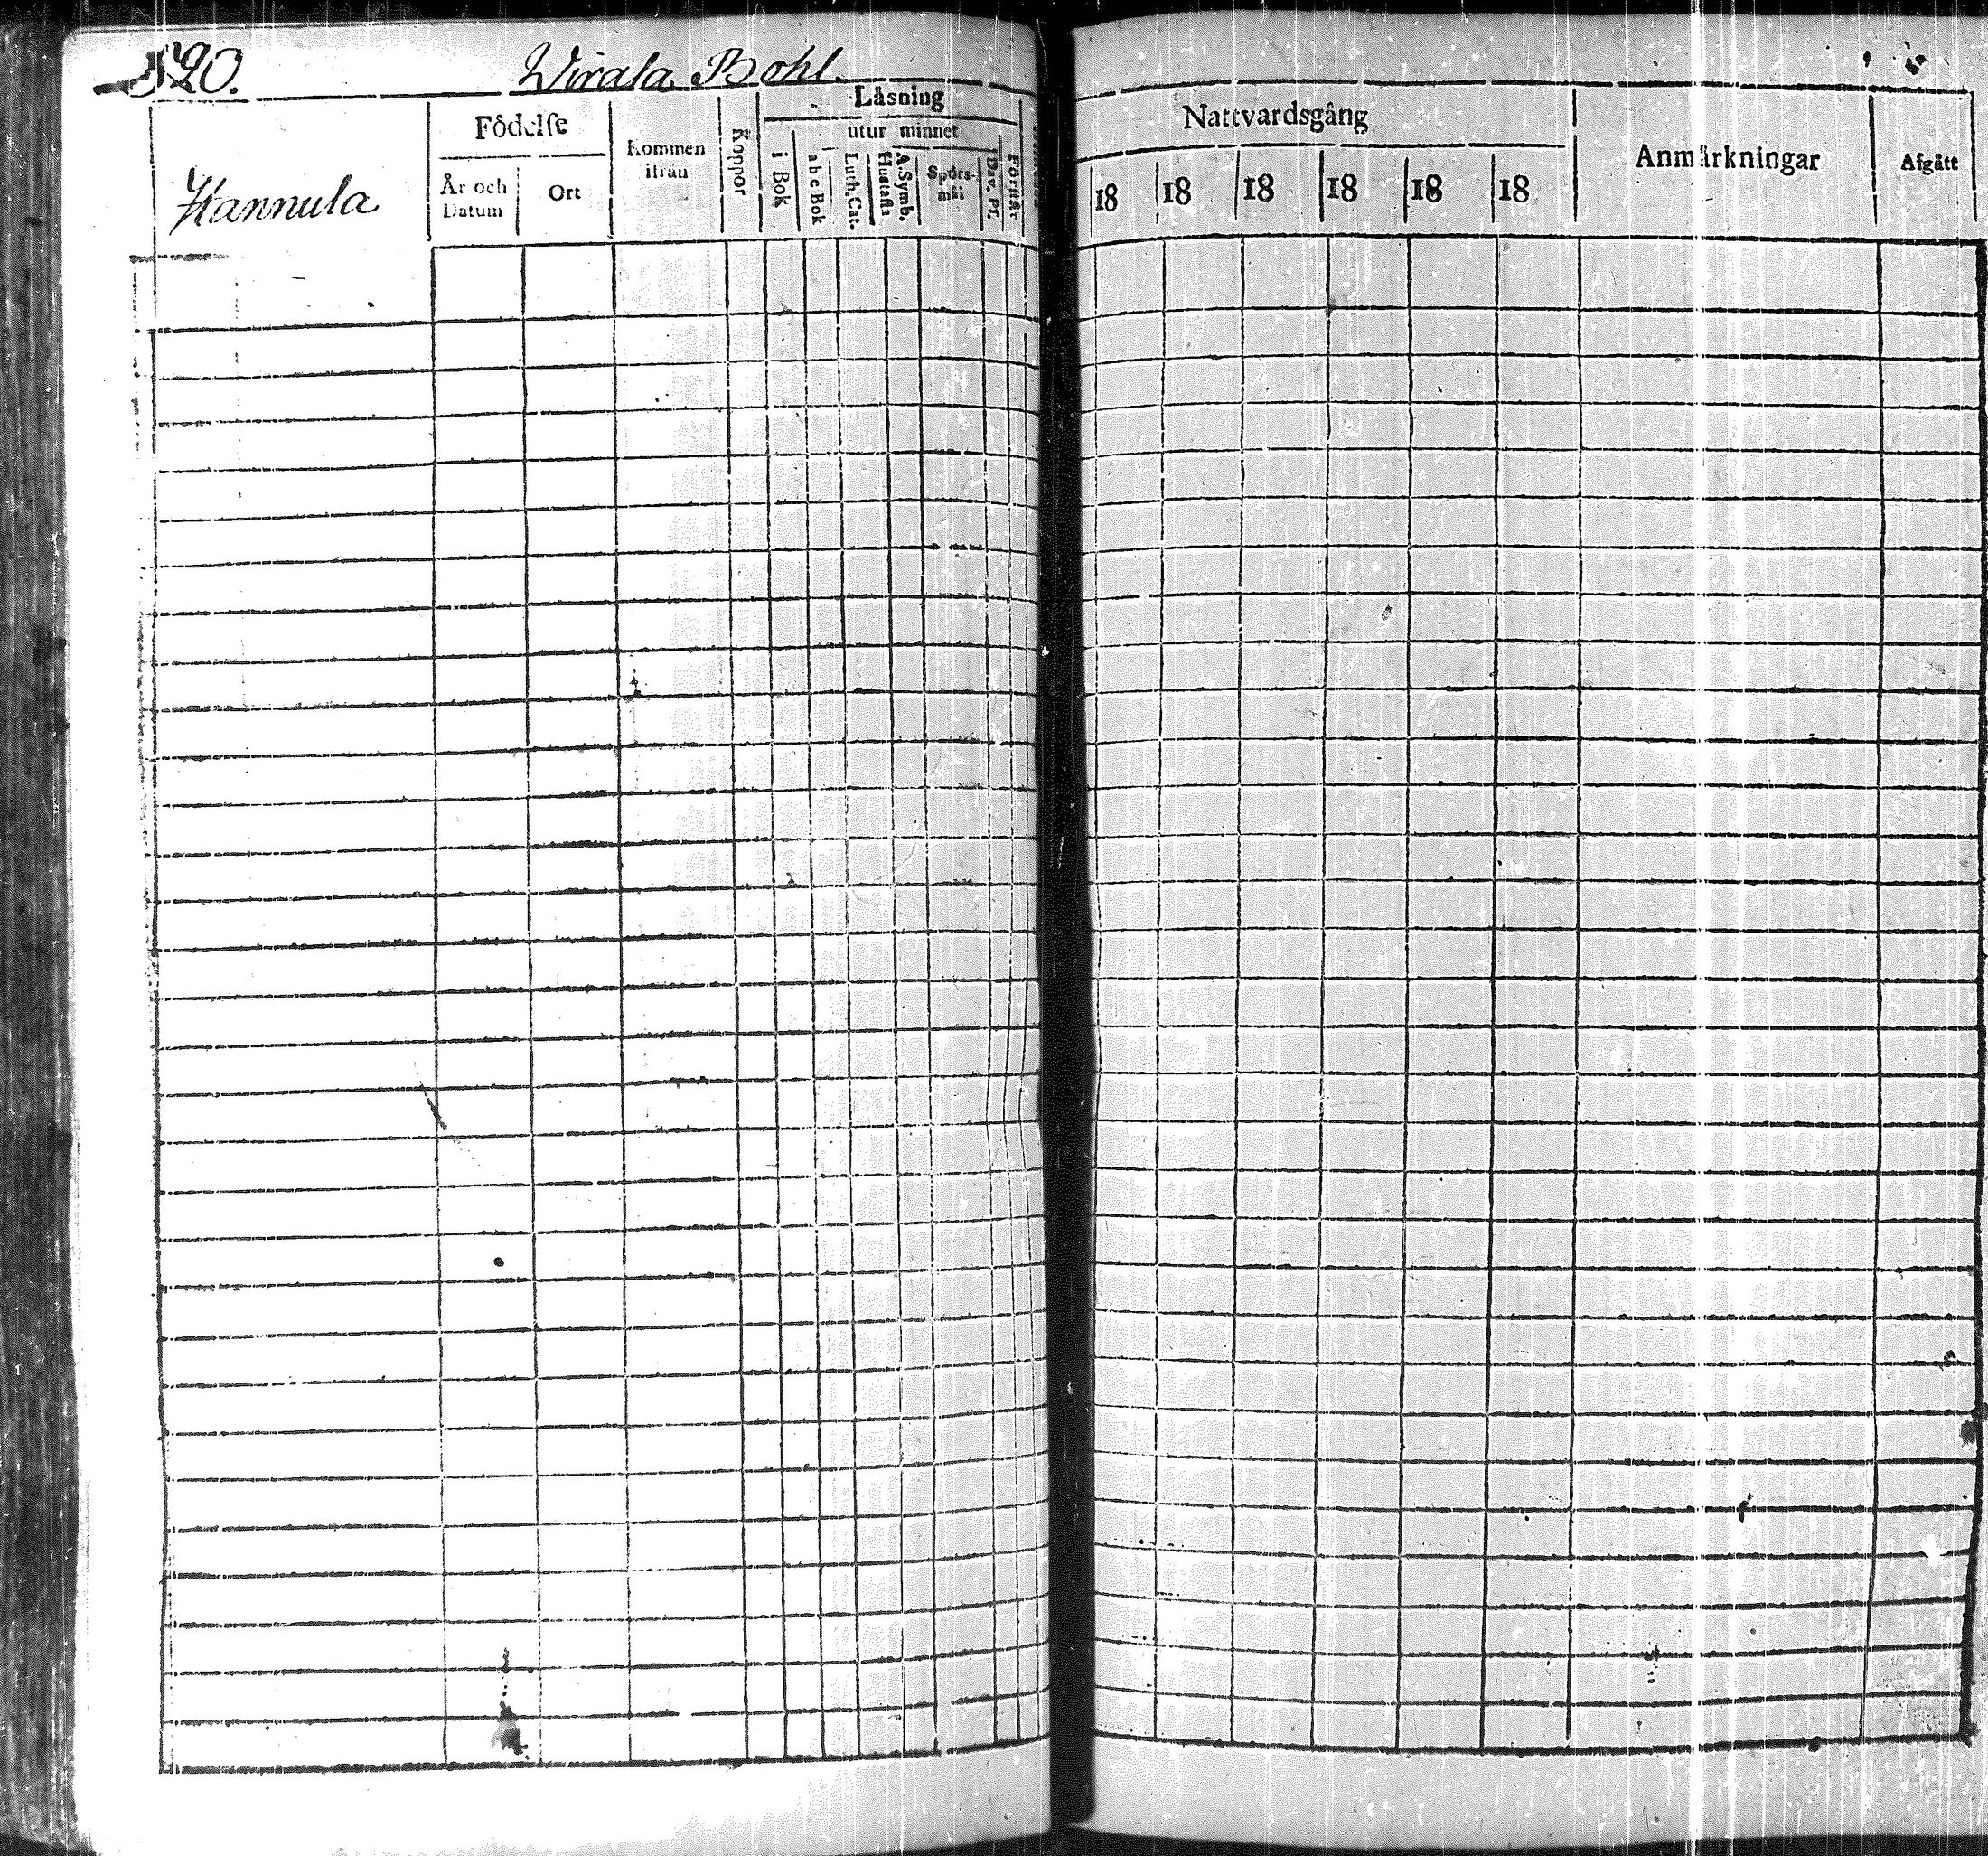 520. Wirala Bohl.
Hannula
Födelse
År och Datum
Ort
Kommen ifrån
Koppor
Läsning
utur minnet
i Bok
abc Bok
Luth. Cat.
Hustafla
A. Symb.
Spörs-
mål
Dav. Ps.
Förhör
Nattvardsgång
18 18 18 18 18 18
Anmärkningar
Afgått